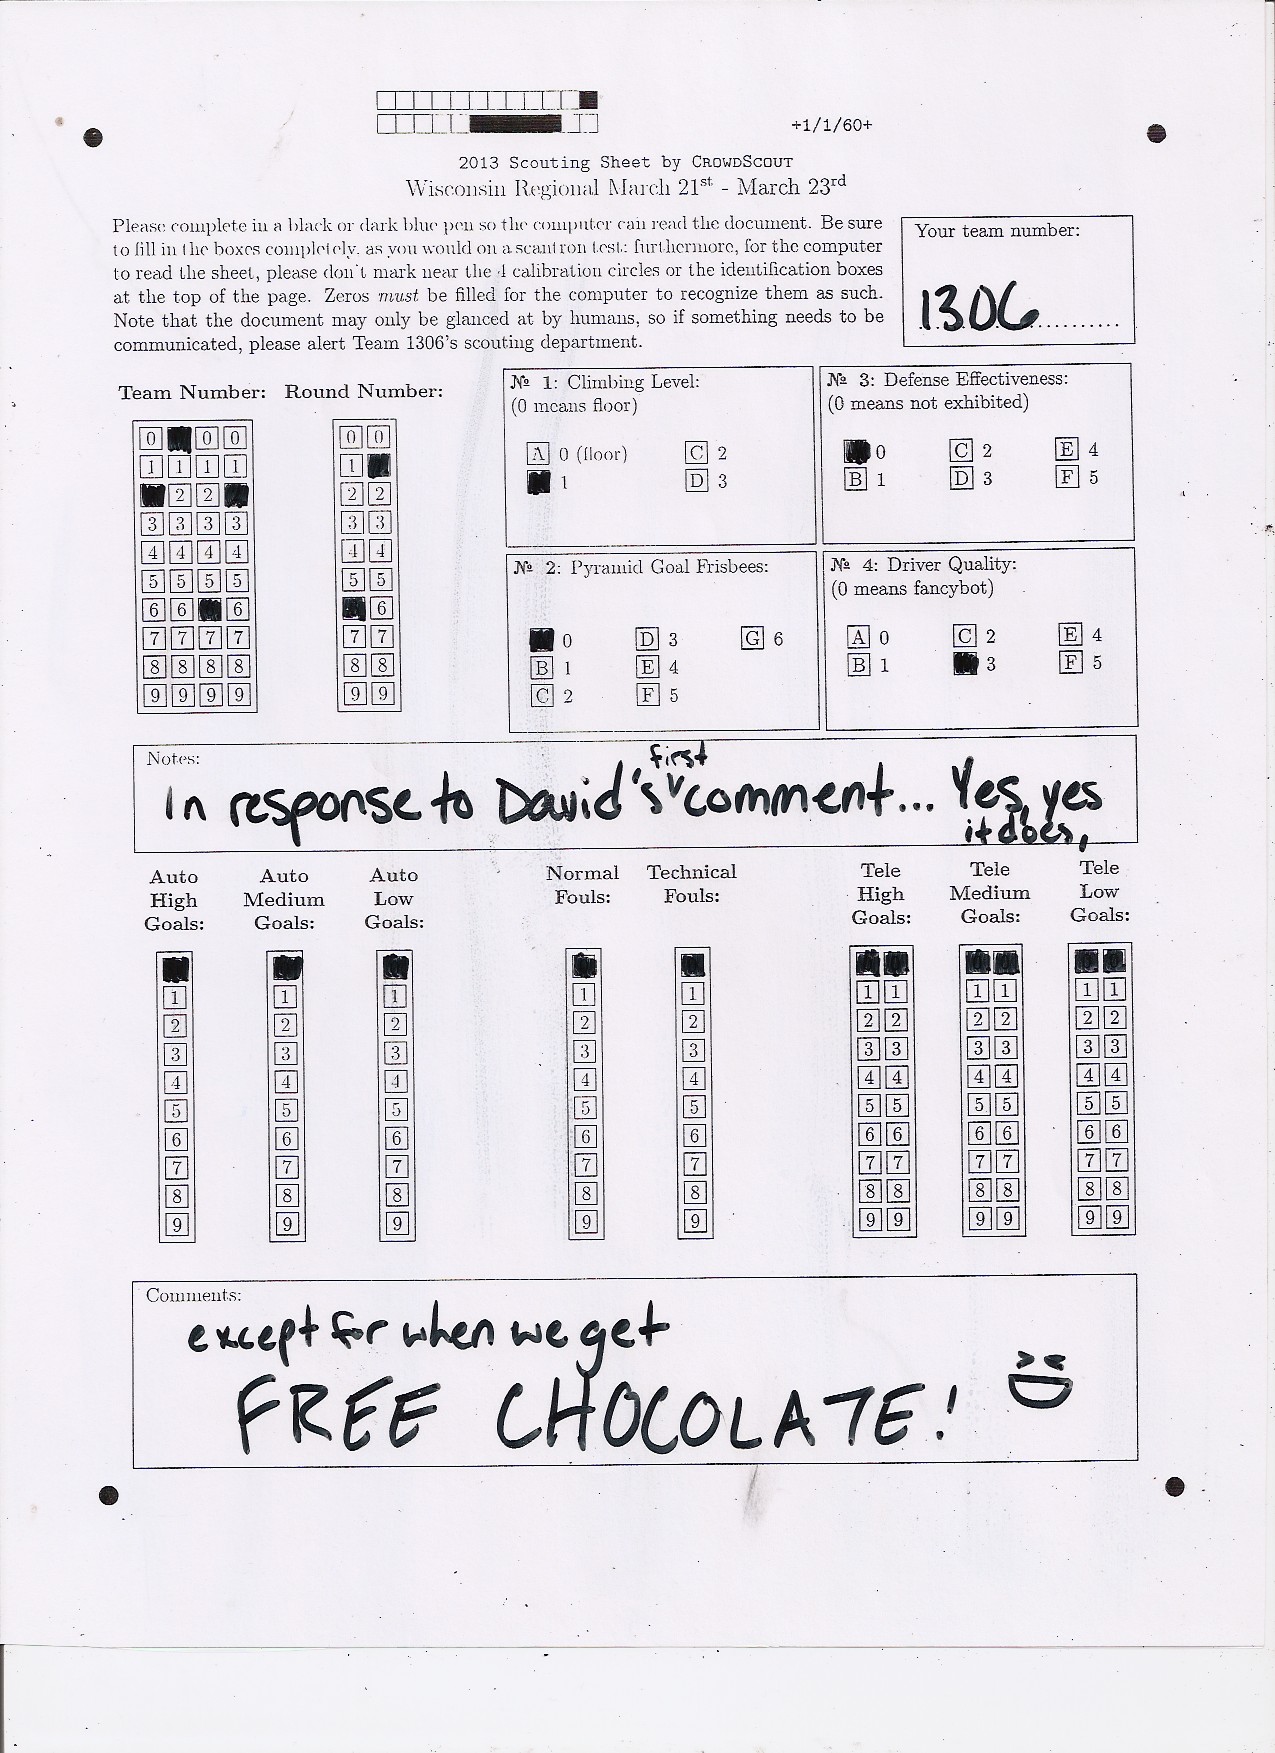 +1/1/60+
2013 Scouting Sheet by CROWDSCOUT
Wisconsin Regional March 21st - March 23rd
Please complete in a black or dark blue pen so the computer can read the document. Be sure
to fill in the boxes completely, as you would on a scantron test; furthermore, for the computer
to read the sheet, please don't mark near the 4 calibration circles or the identification boxes
at the top of the page. Zeros must be filled for the computer to recognize them as such.
Note that the document may only be glanced at by humans, so if something needs to be
communicated, please alert Team 1306's scouting department.
Your team number:
1306
Team Number: Round Number:
0 0 0 0 0
1 1 1 1 1
2 2 2 2
3 3 3 3 3 3
4 4 4 4 4 4
5 5 5 5 5 5
6 6 6 6
7 7 7 7 7 7
8 8 8 8 8 8
9 9 9 9 9 9
№ 1: Climbing Level:
(0 means floor)
A 0 (floor) C 2
1 D 3
№ 3: Defense Effectiveness:
(0 means not exhibited)
0 C 2 E 4
B 1 D 3 F 5
№ 2: Pyramid Goal Frisbees:
0 D 3 G 6
B 1 E 4
C 2 F 5
№ 4: Driver Quality:
(0 means fancybot)
A 0 C 2 E 4
B 1 3 F 5
Notes:
In response to David's first comment... Yes, yes
it does,
Auto High Goals: Auto Medium Goals: Auto Low Goals: Normal Fouls: Technical Fouls: Tele High Goals: Tele Medium Goals: Tele Low Goals:
1 1 1 1 1 1 1 1 1 1 1
2 2 2 2 2 2 2 2 2 2 2
3 3 3 3 3 3 3 3 3 3 3
4 4 4 4 4 4 4 4 4 4 4
5 5 5 5 5 5 5 5 5 5 5
6 6 6 6 6 6 6 6 6 6 6
7 7 7 7 7 7 7 7 7 7 7
8 8 8 8 8 8 8 8 8 8 8
9 9 9 9 9 9 9 9 9 9 9
Comments:
except for when we get
FREE CHOCOLATE!